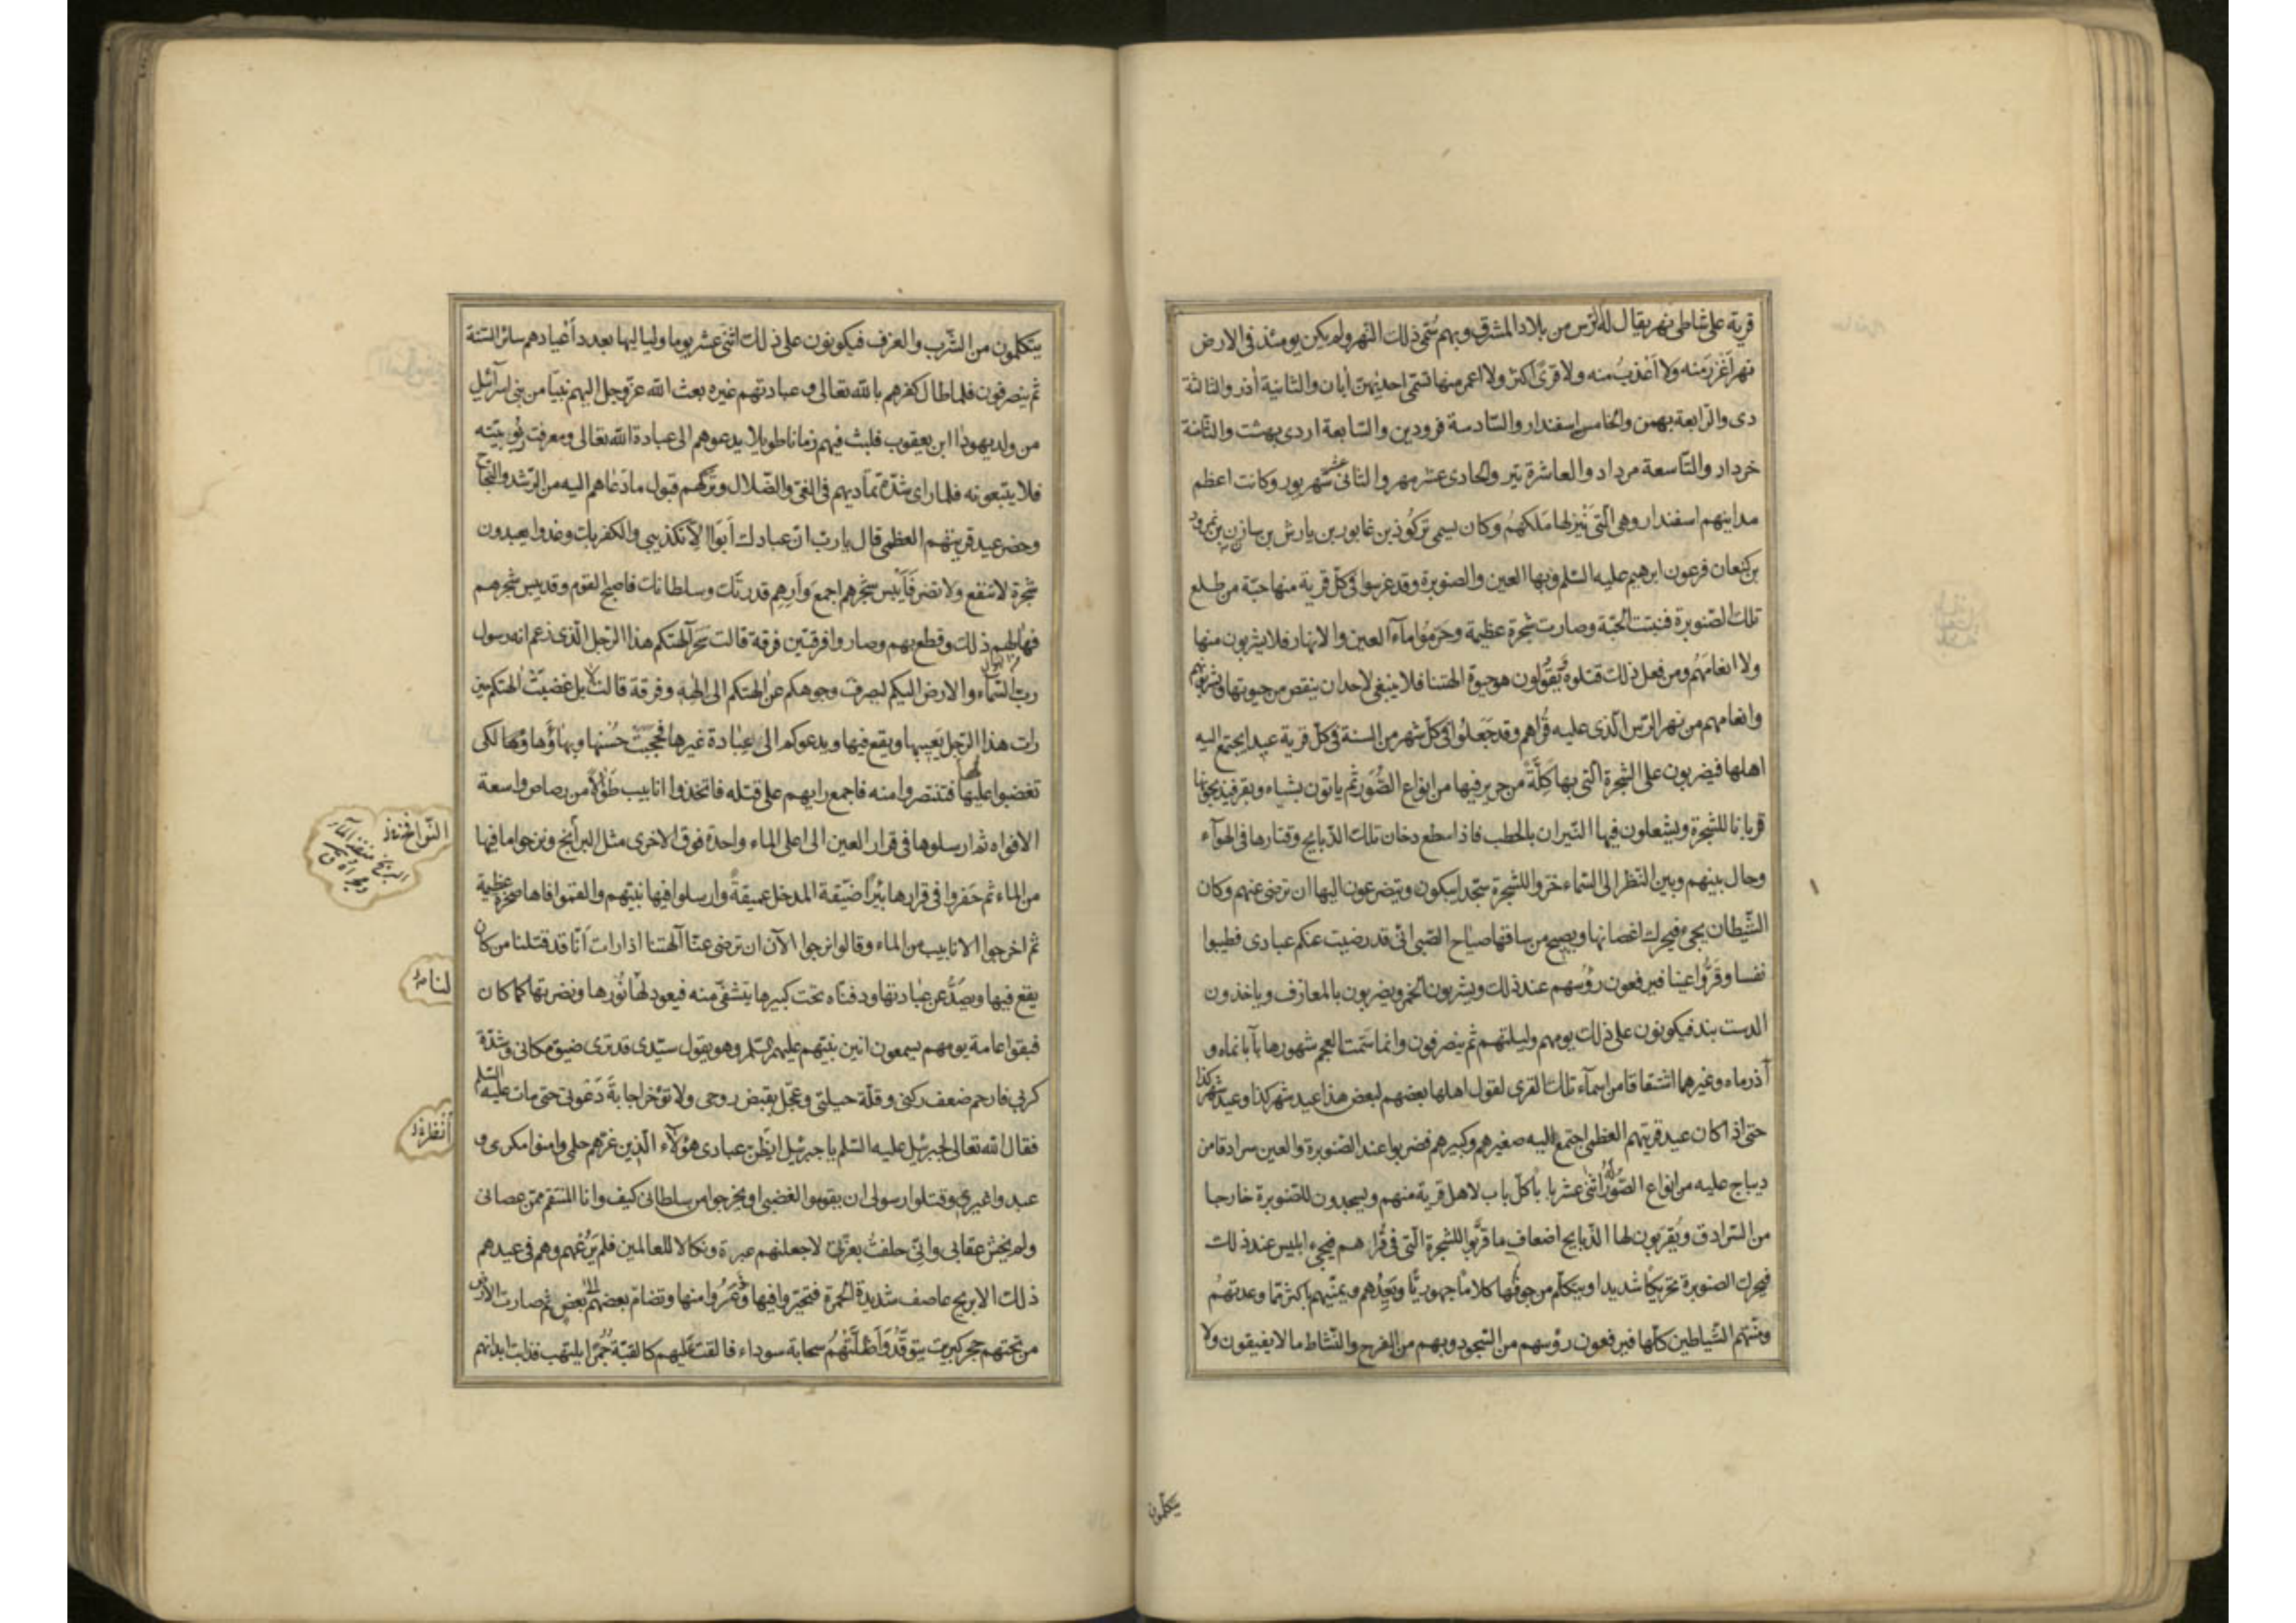 قرية على شاطئ نهر يقال له الرس من بلاد المشرق وبهم سُمّي ذلك النهر ولم يكن يومئذ في الارض
نهر اَغْزَرَ مَنه ولا اَعْذبُ منه ولا قرىً اكثر ولا اعمر منها تسمّى احديٰهنّ أبان والثانية أذر والثالثة
دى والرّابعة بهمن والخامس اسفندار والسّادسة فرودين والسّابعة اردى بهشت والثّامنة
خرداد والتّاسعة مرداد والعاشرة تير والحادى عشر مهر والثانى عشر شهريور وكانت اعظم
مداينهم اسفندار وهى الّتى يَنْزِلها مَلكهُم وكان يسمى تركوذ بن غابور بن يارش بن سازن بن نمرود
بن كنعان فرعون ابرهيم عليه السّلم وبها العين والصنوبرة وقد غرسوا فى كلّ قرية منها حبّة من طلع
تلك الصّنوبرة فنبتت الحبّة وصارت شجرة عظيمة وحَرّمُوا مآء العين والانهار فلا يشربون منها
ولا انعامَهُم ومن فعل ذلك قتلوهُ ويَقُولون هو حيوة الهتنا فلا ينبغى لاحد ان ينقص من حيوتها ويشربون هم
وانعامهم من نهر الرّس الّذى عليه قُراهم وقد جَعَلُوا فى كلّ شهر من السنة فى كلّ قرية عيدا يجتمع اليه
اهلها فيضربون على الشجرة الّتى بها كِلَّةً من حرير فيها من انواع الصُّوَر ثم ياتون بشاء وبقر فيذبحونها
قربانا للشجرة ويشعلون فيها النّيران بالحطب فاذا سطع دخان تلك الذّبايح وقتارها فى الهوآء
وحال بينهم وبين النّظر الى السّماء خرّوا للشجرة سجّدا يبكون ويتضرعون اليها ان ترضى عنهم وكان
الشّيطان يجىء فيحرك اغصانها ويصيح من ساقها صياح الصّبى انّى قد رضيت عنكم عبادى فطيبوا
نفسا وقَرُّوا عينا فيرفعون رؤسهم عند ذلك ويشربون الخمر ويضربون بالمعازف وياخذون
الدست بند فيكونون على ذلك يومهم وليلتهم ثم ينصرفون وانما سَمّت العجم شهورها بآبانماه و
آذرماه وغيرهما اشتقاقا من اسمآء تلك القرى لقول اهلها بعضهم لبعض هذا عيد شهر كذا وعيد شهر كذا
حتى اذا كان عيد قريتهم العظمى اجتمع اليه صغيرهم وكبيرهم فضربوا عند الصّنوبرة والعين سرادقا من
ديباج عليه من انواع الصُّوَر له اثنى عشر بابا كلّ باب لاهل قرية منهم ويسجدون للصّنوبرة خارجا
من السّرادق ويُقربون لها الذّبايح اضعاف ما قرّبوا للشجرة الّتى فى قُراهم فيجىء ابليس عند ذلك
فيحرك الصنوبرة تحريكًا شديدا ويتكلّم من جوفها كلامًا جهوريًّا ويَعِدُهم ويمنّيهم باكثر ممّا وعدتهُم
ومنّتهم الشّياطين كلّها فيرفعون رؤسهم من السّجود وبهم من الفرح والنّشاط ما لا يفيقون ولا
يتكلّمون
يتكلمون من الشّرب والعزف فيكونون على ذلك اثنى عشر يوما ولياليها بعدد أعيادهم سائر السّنة
ثم ينصرفون فلما طال كفرهم بالله تعالى وعبادتهم غيره بعث الله عزّ وجل اليهم نبيّا من بنى اسرآئيل
من ولد يهودا ابن يعقوب فلبث فيهم زمانا طويلا يدعوهم الى عبادة الله تعالى ومعرفت ربوبيّته
فلا يتبعونه فلما راى شدّة تماديهم فى الغىّ والضّلال وتركهم قبول ما دَعٰاهم اليه من الرّشد والنّجاح
وحضر عيد قريتهم العظمى قال يا ربّ انّ عبادك اَبَوْا الاّ تكذيبى والكفر بك وغدوا يعبدون
شجرة لا تنفع ولا تضر فاَيْبِس شجرهم اجمع وَاَرِهِم قدرتَك وسلطانك فاصبح القوم وقد يبس شجرهم
فهالهم ذلك وقطع بهم وصاروا فرقتين فرقة قالت سَحَر آلهتكم هذا الرّجل الّذى زعم انه رسول
ربّ السّمآء والارض اليكم ليصرف وجوهكم عن الهتكم الى الهه وفرقة قالت لا بل غضبَتْ الهتكم حين
رات هذا الرّجل يَعيبها ويقع فيها ويدعوكم الى عِبٰادة غيرها فحجبت حُسْنها وبهٰاؤها لكى
تغضبوا لها عليها فتنتصروا منه فاجمع رايهم على قتله فاتخذوا انابيب طِوٰالاً من رصاص واسعة
الافواه ثم ارسلوها فى قرار العين الى اعلى الماء واحدة فوق الاخرى مثل البرابخ ونزحوا ما فيها
من الماء ثم حَفروا فى قرارها بئرًا ضيّقة المدخل عميقةً وارسلوا فيها نبيّهم والقموا فاها صخرة عظيمة
ثم اخرجوا الانابيب من الماء وقالوا نرجوا الآن ان ترضى عنّا آلهتنا اذا رات اَنّا قد قتلنا من كان
يقع فيها ويصُدُّ عن عِبادتها ودفنّاه تحت كبيرها يتشفّى منه فيعود لها نُورها ونضرتها كما كان
فبقوا عامة يومهم يسمعون انين نبيّهم عليهم السّلم وهو يقول سيّدى قد ترى ضيق مكانى وشدّة
كربى فارحم ضعف ركنى وقلّة حيلتى وعجّل بقبض روحى ولا تؤخر اجابةَ دَعوتى حتى مات عليه السّلم
فقال الله تعالى لجبرئيل عليه السّلم يا جبرئيل ايَظُنّ عبادى هؤلآء الّذين غرّهم حلمى وامنوا مكرى و
عبدوا غيرى وقتلوا رسولى ان يقوموا لغضبى او يخرجوا من سلطانى كيف وانا المنتقم ممّن عصانى
ولم يخش عقابى وانّى حلفتُ بعزّتى لاجعلنهم عبرة ونكالا للعالمين فلم يَرُعْهم وهم فى عيدهم
ذلك الا بريح عاصف شديدة الحُمرة فتحيّروا فيها وذُعِرُوا منها وتضامّ بعضهم الى بعض ثم صارت الارض
من تحتهم حجر كبريت يتوقّدُ وَاَظلَّتْهُم سحابة سوداء فالقت عَليهم كالقبّة جَمْرًا يلتهب فذابت ابدانهم
لنا